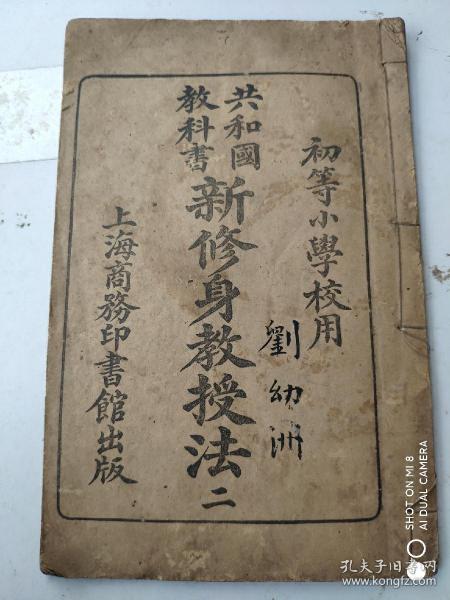 初等小學校用
劉幼洲
共和國
教科書
新修身教授法二
上海商務印書館出版
SHOT ON MI 8
AI DUAL CAMERA
孔夫子旧书网
www.kongfz.com